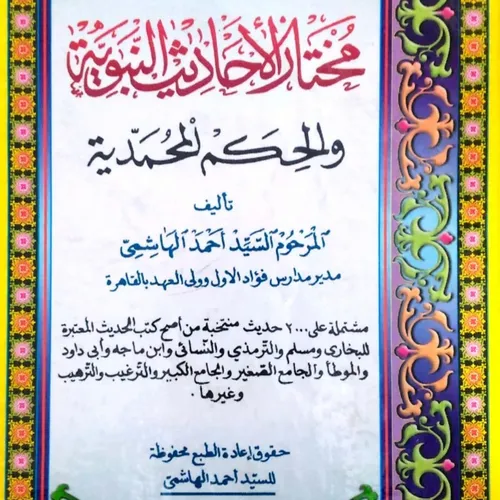 مختار الأحاديث النبوية
والحكم المحمدية
تأليف
المرحوم السيد أحمد الهاشمي
مدير مدارس فؤاد الاول وولى العهد بالقاهرة
مشتملة على ٢٠٠٠ حديث منتخبة من أصح كتب الحديث المعتبرة
للبخارى ومسلم والترمذي والنسائى وابن ماجه وأبى داود
والموطأ والجامع الصغير والجامع الكبير والترغيب والترهيب
وغيرها .
حقوق إعادة الطبع محفوظة
للسيد أحمد الهاشمى